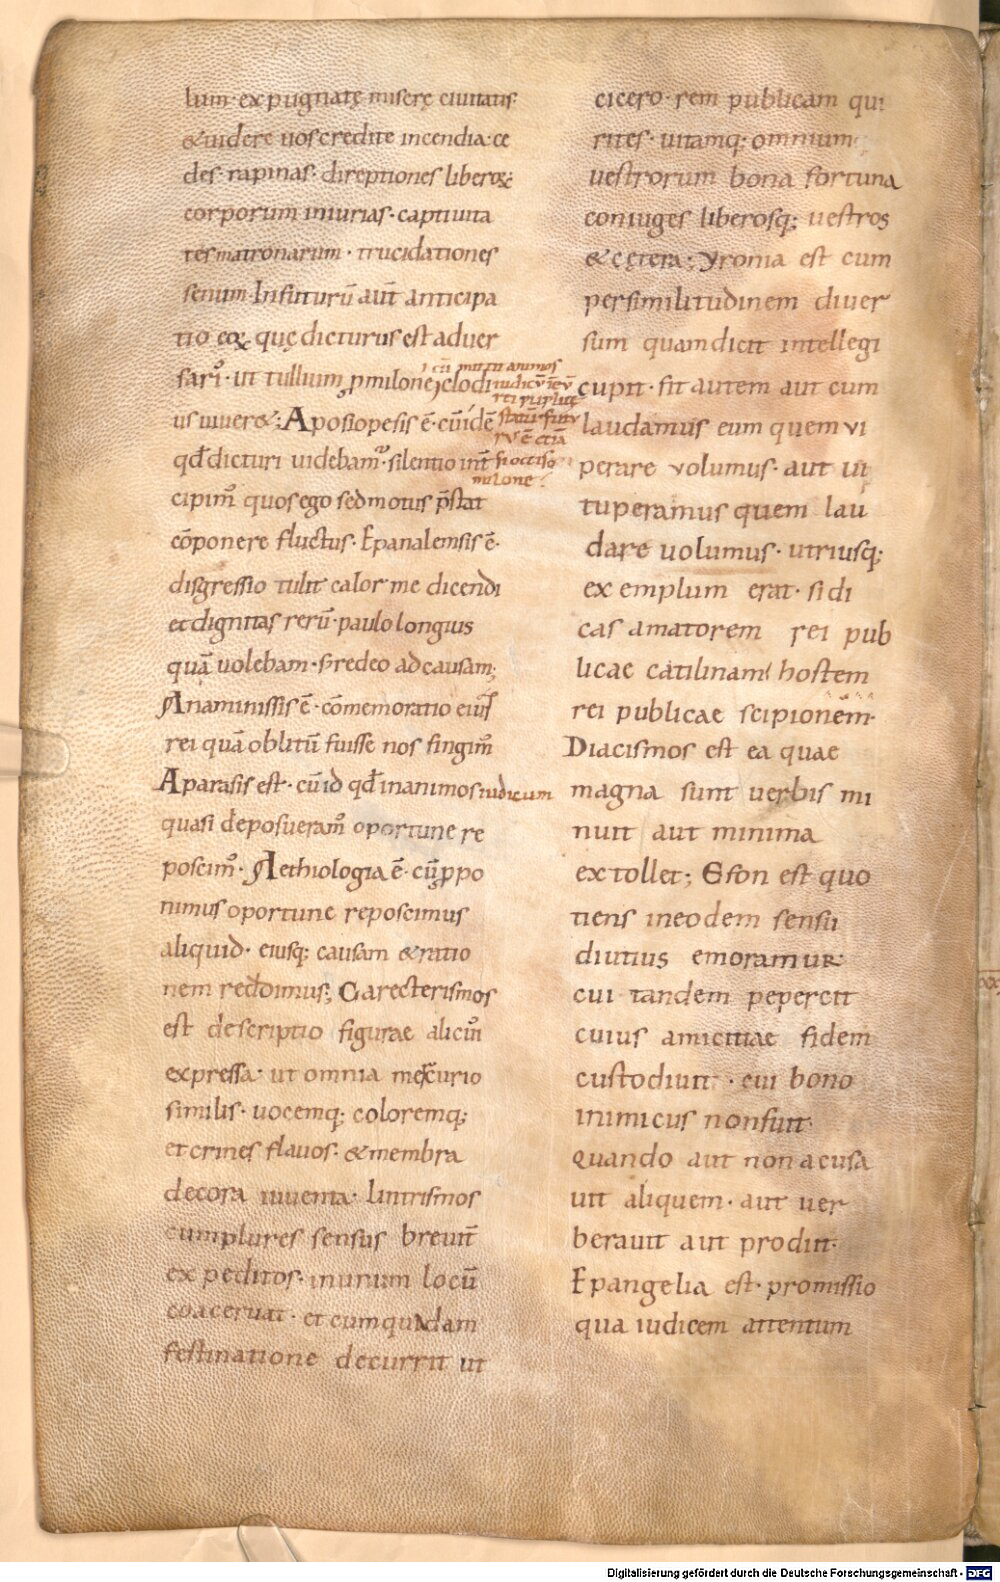 lium· expugnatę miserę ciuitatis·
&uidere uos credite incendia· ce
des· rapinas· direptiones liberoꝝ·
corporum iniurias· captiuita
tes matronarum· trucidationes
senum· In futurū aūt anticipa
tio eoꝝ quę dicturus est aduer
sari᾿· ut tullium ꝓmilone clodi
us uiuer&; Aposiopesis ē· cū idē
qđ dicturi uidebam᾿· silentio int
cipim᾿ quos ego sed motus p̄stat
cōponere fluctus· Epanalemsis ē·
disgressio tulit calor me dicendi
et dignitas rerū· paulo longius
quā uolebam· s; redeo ad causam;
Anaminissis ē· cōmemoratio eius
rei quā oblitū fuisse nos fingim᾿
Aparasis est· cū id qđ in animos iudicum
quasi deposueram᾿ oportune re
poscim᾿· Aethiologia ē· cū ꝓpo
nimus oportune reposcimus
aliquid· eiusq; causam & ratio
nem reddimus; Carecterismos
est descriptio figurae alicui᾿
expressa· ut omnia mercurio
similis· uocemq; coloremq;
et crines flauos· & membra
decora iuuenta· lintrismos
cum plures sensus breuit̄
expeditos· in unum locū
coaceruat· et cum quadam
festinatione decurrit ut
cū mittit animos
iudicū
statū· futu
rū ē etiā
si occiso
milone·
cicero· rem publicam qui
rites· uitamq; omnium
uestrorum bona fortuna
coniuges liberosq; uestros
& cętera; yronia est cum
per similitudinem diuer
sum quam dicit intellegi
cupit· fit autem aut cum
laudamus eum quem vi
perare volumus· aut ui
tuperamus quem lau
dare uolumus· utriusq;
exemplum erat· si di
cas amatorem rei pub
licae catilinam hostem
rei publicae scipionem·
Diacismos est ea quae
magna sunt uerbis mi
nuit aut minima
extollet; Eson est quo
tiens in eodem sensu
diutius emoramur
cui tandem pepercit
cuius amicitiae fidem
custodiuit· cui bono
inimicus non fuit·
quando aut non acusa
uit aliquem· aut uer
berauit aut prodiit·
Epangelia est· promissio
qua iudicem attentum
Digitalisierung gefördert durch die Deutsche Forschungsgemeinschaft - DFG